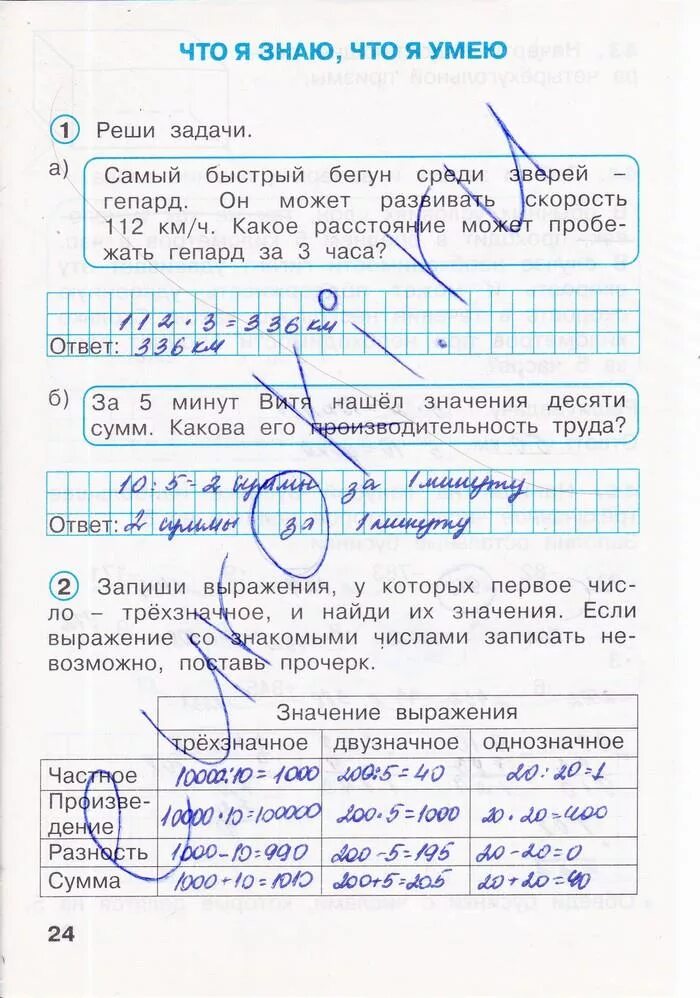 ЧТО Я ЗНАЮ, ЧТО Я УМЕЮ
1 Реши задачи.
а) Самый быстрый бегун среди зверей –
гепард. Он может развивать скорость
112 км/ч. Какое расстояние может пробе-
жать гепард за 3 часа?
112 · 3 = 336 км
Ответ: 336 км
б) За 5 минут Витя нашёл значения десяти
сумм. Какова его производительность труда?
10 : 5 = 2 суммы за 1 минуту
Ответ: 2 суммы за 1 минуту
2 Запиши выражения, у которых первое чис-
ло – трёхзначное, и найди их значения. Если
выражение со знакомыми числами записать не-
возможно, поставь прочерк.
Значение выражения
трёхзначное двузначное однозначное
Частное 10000:10=1000 200:5=40 20:20=1
Произве-
дение 10000·10=100000 200·5=1000 20·20=400
Разность 1000-10=990 200-5=195 20-20=0
Сумма 1000+10=1010 200+5=205 20+20=40
24